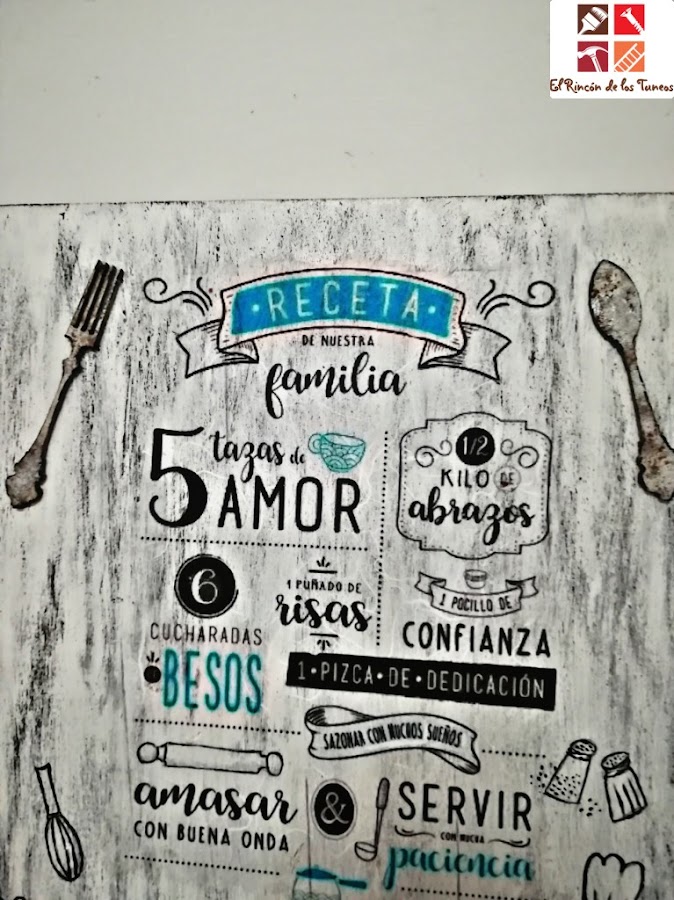 El Rincón de los Tuneos
·RECETA·
DE NUESTRA
familia
5 tazas de
AMOR
1/2
KILO DE
abrazos
6
CUCHARADAS
BESOS
1 PUÑADO DE
risas
1 POCILLO DE
CONFIANZA
1·PIZCA·DE·DEDICACIÓN
SAZONAR CON MUCHOS SUEÑOS
amasar
CON BUENA ONDA
&
SERVIR
CON MUCHA
paciencia